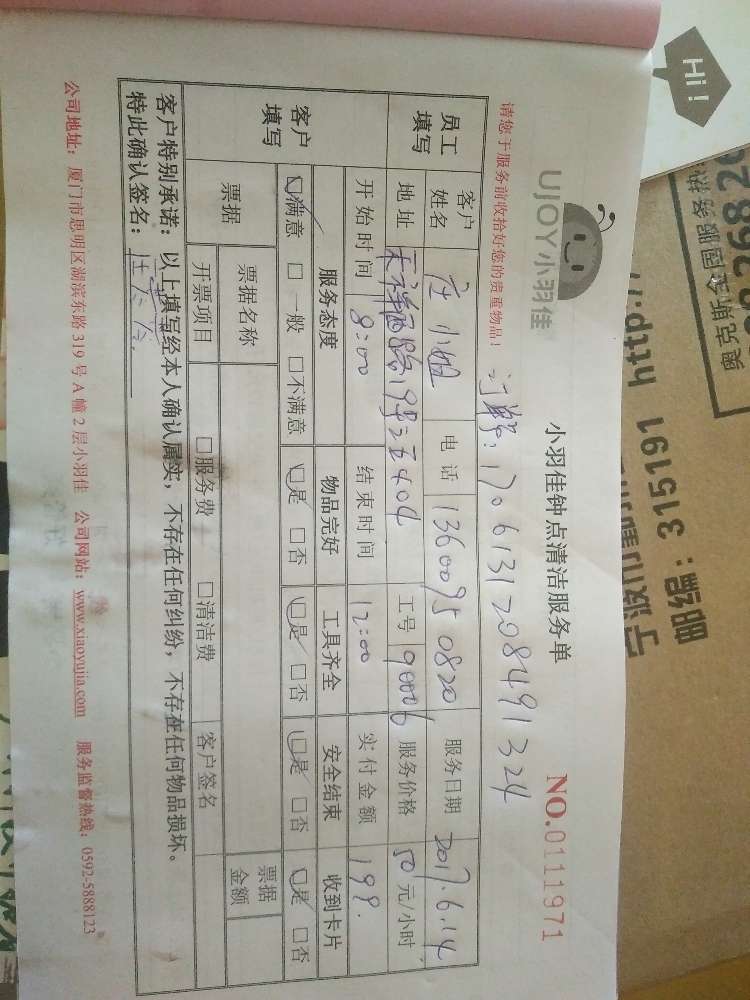 Hi!
UJOY小羽佳
小羽佳钟点清洁服务单
NO.0111971
请您于服务前收拾好您的贵重物品！
订单：170613120849 1324
员工填写
客户姓名 庄小姐 电话 13600950820 服务日期 2017.6.14
地址 天祥西路19号之五404 工号 90006 服务价格 50元/小时
客户填写
开始时间 8:00 结束时间 12:00 实付金额 199.
服务态度 物品完好 工具齐全 安全结束 收到卡片
☑满意 □一般 □不满意 ☑是 □否 ☑是 □否 ☑是 □否 ☑是 □否
票据 票据名称 票据金额
开票项目 □服务费 □清洁费 客户签名
客户特别承诺：以上填写经本人确认属实，不存在任何纠纷，不存在任何物品损坏。
特此确认签名：
公司地址：厦门市思明区湖滨东路319号A幢2层小羽佳 公司网站：www.xiaoyujia.com 服务监督热线：0592-5888123
奥克斯全国服务热
http:/
邮编：315191